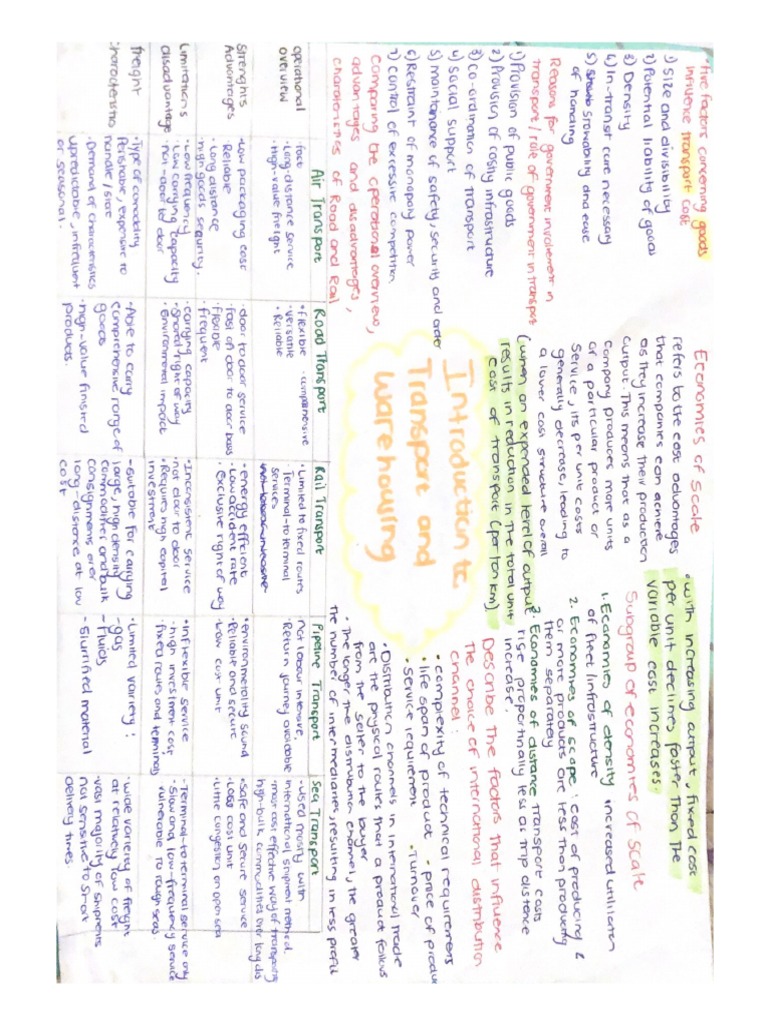 Introduction to
Transport and
warehousing
•Five factors concerning goods
influence transport cost
1) Size and divisibility
2) Potential liability of goods
3) Density
4) In-transit care necessary
5) Stowability and ease
of handling
Reasons for government involvement in
transport/role of government in transport
1) Provision of public goods
2) Provision of costly infrastructure
3) co-ordination of transport
4) social support
5) maintenance of safety, security and order
6) Restraint of monopoly power
7) control of excessive competition
Comparing the operational overview,
advantages and disadvantages,
charateristics of Road and Rail
Economies of Scale
refers to the cost advantages
that companies can achieve
as they increase their production
output. This means that as a
company produces more units
of a particular product or
service, its per unit costs
generally decrease, leading to
a lower cost structure overall
(when an expended level of output
results in reduction in the total unit
cost of transport (per ton km)
•with increasing output, fixed cost
per unit declines faster than the
variable cost increases.
Subgroup of economies of scale
1. Economies of density increased utilization
of fleet infrastructure
2. Economies of scope: cost of producing 2
or more products are less than producing
them separately
3. Economies of distance transport costs
rise proportinally less as trip distance
increase.
Describe the factors that influence
the choice of international distribution
channel:
•complexity of technical requirements
•life span of product •price of product
•service requirement •Turnover
•Distribution channels in international trade
are the physical routes that a product follows
from the seller to the buyer
•The longer the distribution channel, the greater
the number of intermediaries, resulting in less profit
Air Transport
Road Transport
Rail Transport
Pipeline Transport
Sea Transport
operational
overview
•fast
•Long-distance service
•High-value freight
•flexible •comprehensive
•versatile
•Reliable
•Limited to fixed routes
Terminal-to terminal
services
not labour intensive,
•Return journey avoidable
•Used mostly with
international shipment method.
•most cost effective way of transporting
high-bulk commodities over long dis
Strenghts
Advantages
•Low packaging cost
•Reliable
•Long distance
•high goods security.
•door to door service
•fast on door to door basis
•flexible
•frequent
•energy efficient
•Low accident rate
•exclusive right of way
•environmetality sound
•Reliable and secure
•Low cost unit
•safe and secure service
•Low cost unit
•Little congestion on open sea
Limitations
disadvantage
•Low frequency
•Low carrying capacity
•Not-door to door
•carrying capacity
•Shared right of way
•environmental impact
•Inconsistent service
•not door to door
•Requires high capital
investment
•Inflexible service
•high investment cost
•fixed routes and terminals
•Terminal-to terminal service only
•Slow and low-frequency service
vulnerable to rough seas
freight
Characteristic
•Type of comodity
Perishable, expensive to
handle/store
•Demand of characteristics
upredictable, infrequent
or seasonal.
•Able to carry
comprehensive range of
goods
•high-value finished
products.
•suitable for carrying
large, high density
commodities and bulk
consignments over
long-distance at low
cost
•Limited variety:
-gas
-fluids
•Slurrified material
•wide variety of freight
at relatively low cost
•vast majority of shipments
not sensitive to short
delivery times.